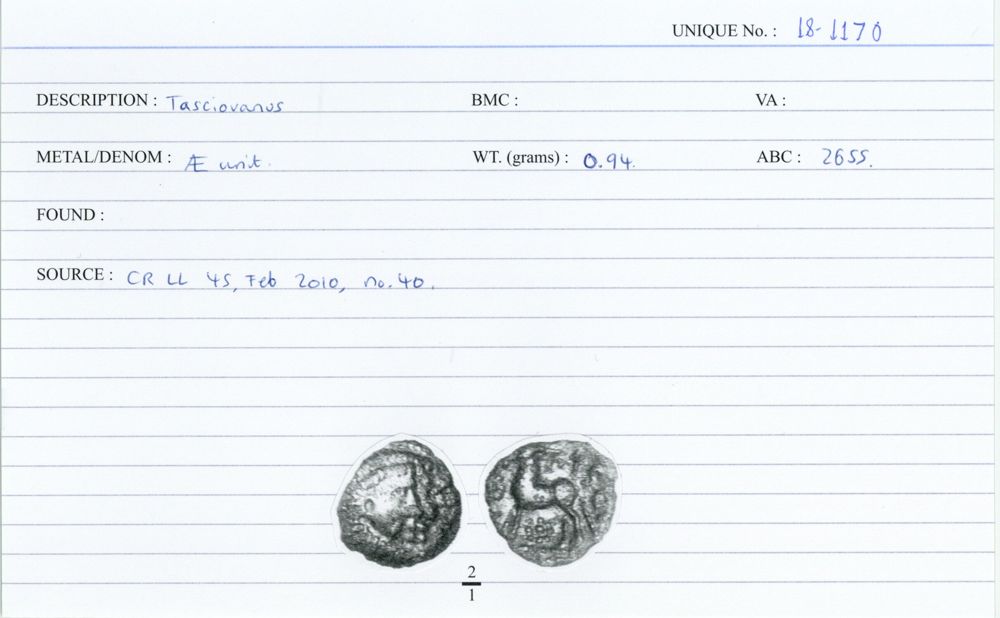 UNIQUE No. : 18-1170
DESCRIPTION : Tasciovanus BMC : VA :
METAL/DENOM : Æ unit. WT. (grams) : 0.94. ABC : 2655.
FOUND :
SOURCE : CR LL 45, Feb 2010, no.40.
2
1